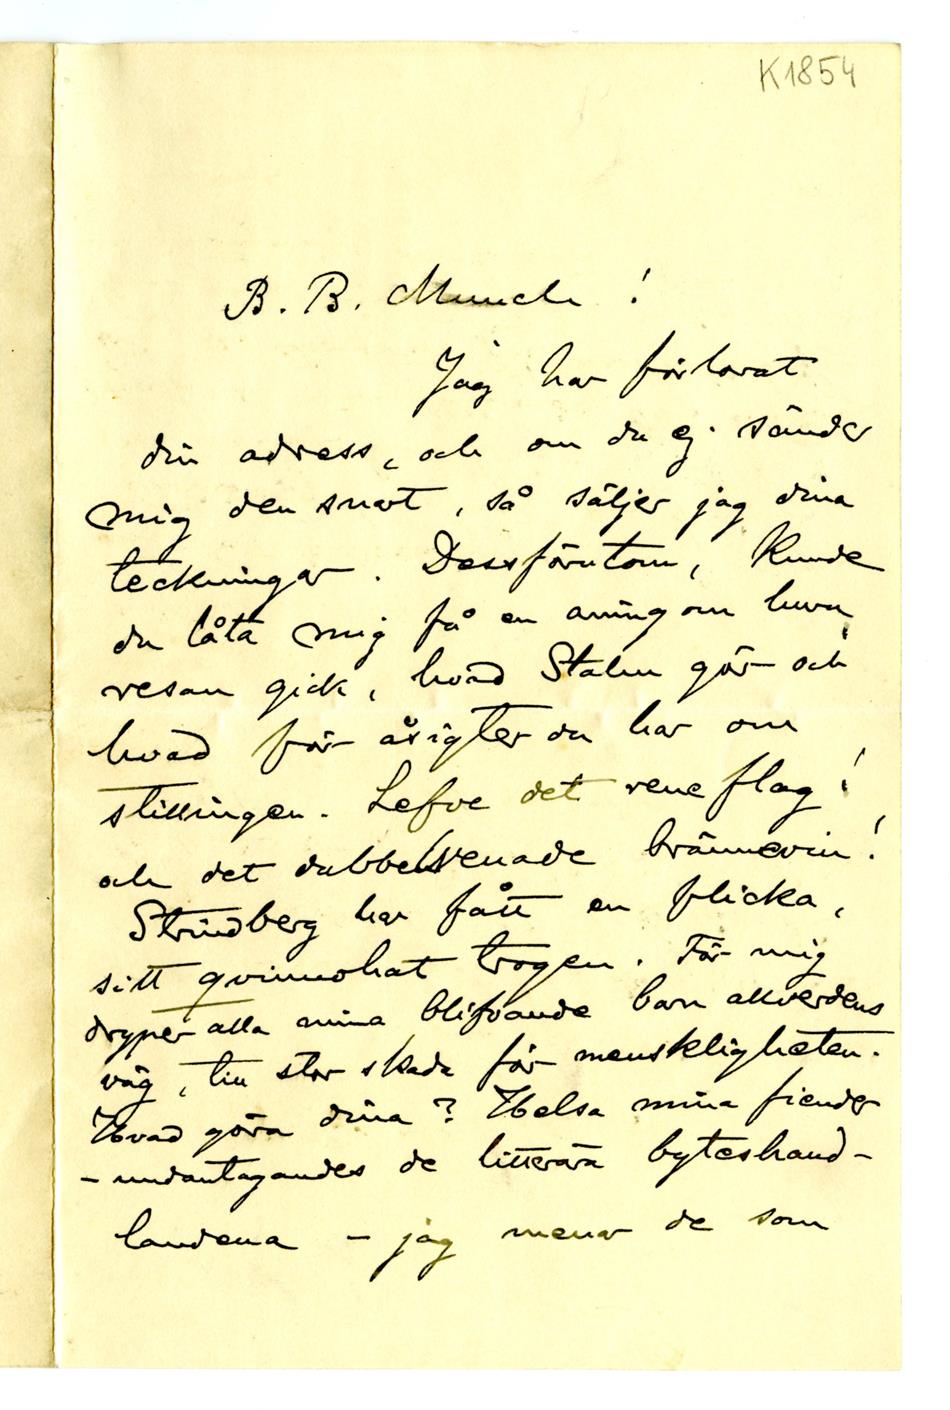 K1854
B. B. Munch !
Jag har förlorat
din adress, och om du ej sänder
mig den snart, så säljer jag dina
teckningar. Dessförutom, kunde
du låta mig få en aning om huru
resan gick, hvad Stalen gör och
hvad för åsigter du har om
ställningen. Lefve det rene flag!
och det dubbelrenade brännevin!
Strindberg har fått en flicka,
sitt qvinnohat trogen. För mig
dryper alla mina blifvande barn allverdens
väg, till stor skada för menskligheten.
Hvad göra dina? Helsa mina fiender
- undantagandes de litterära byteshand-
landena - jag menar de som